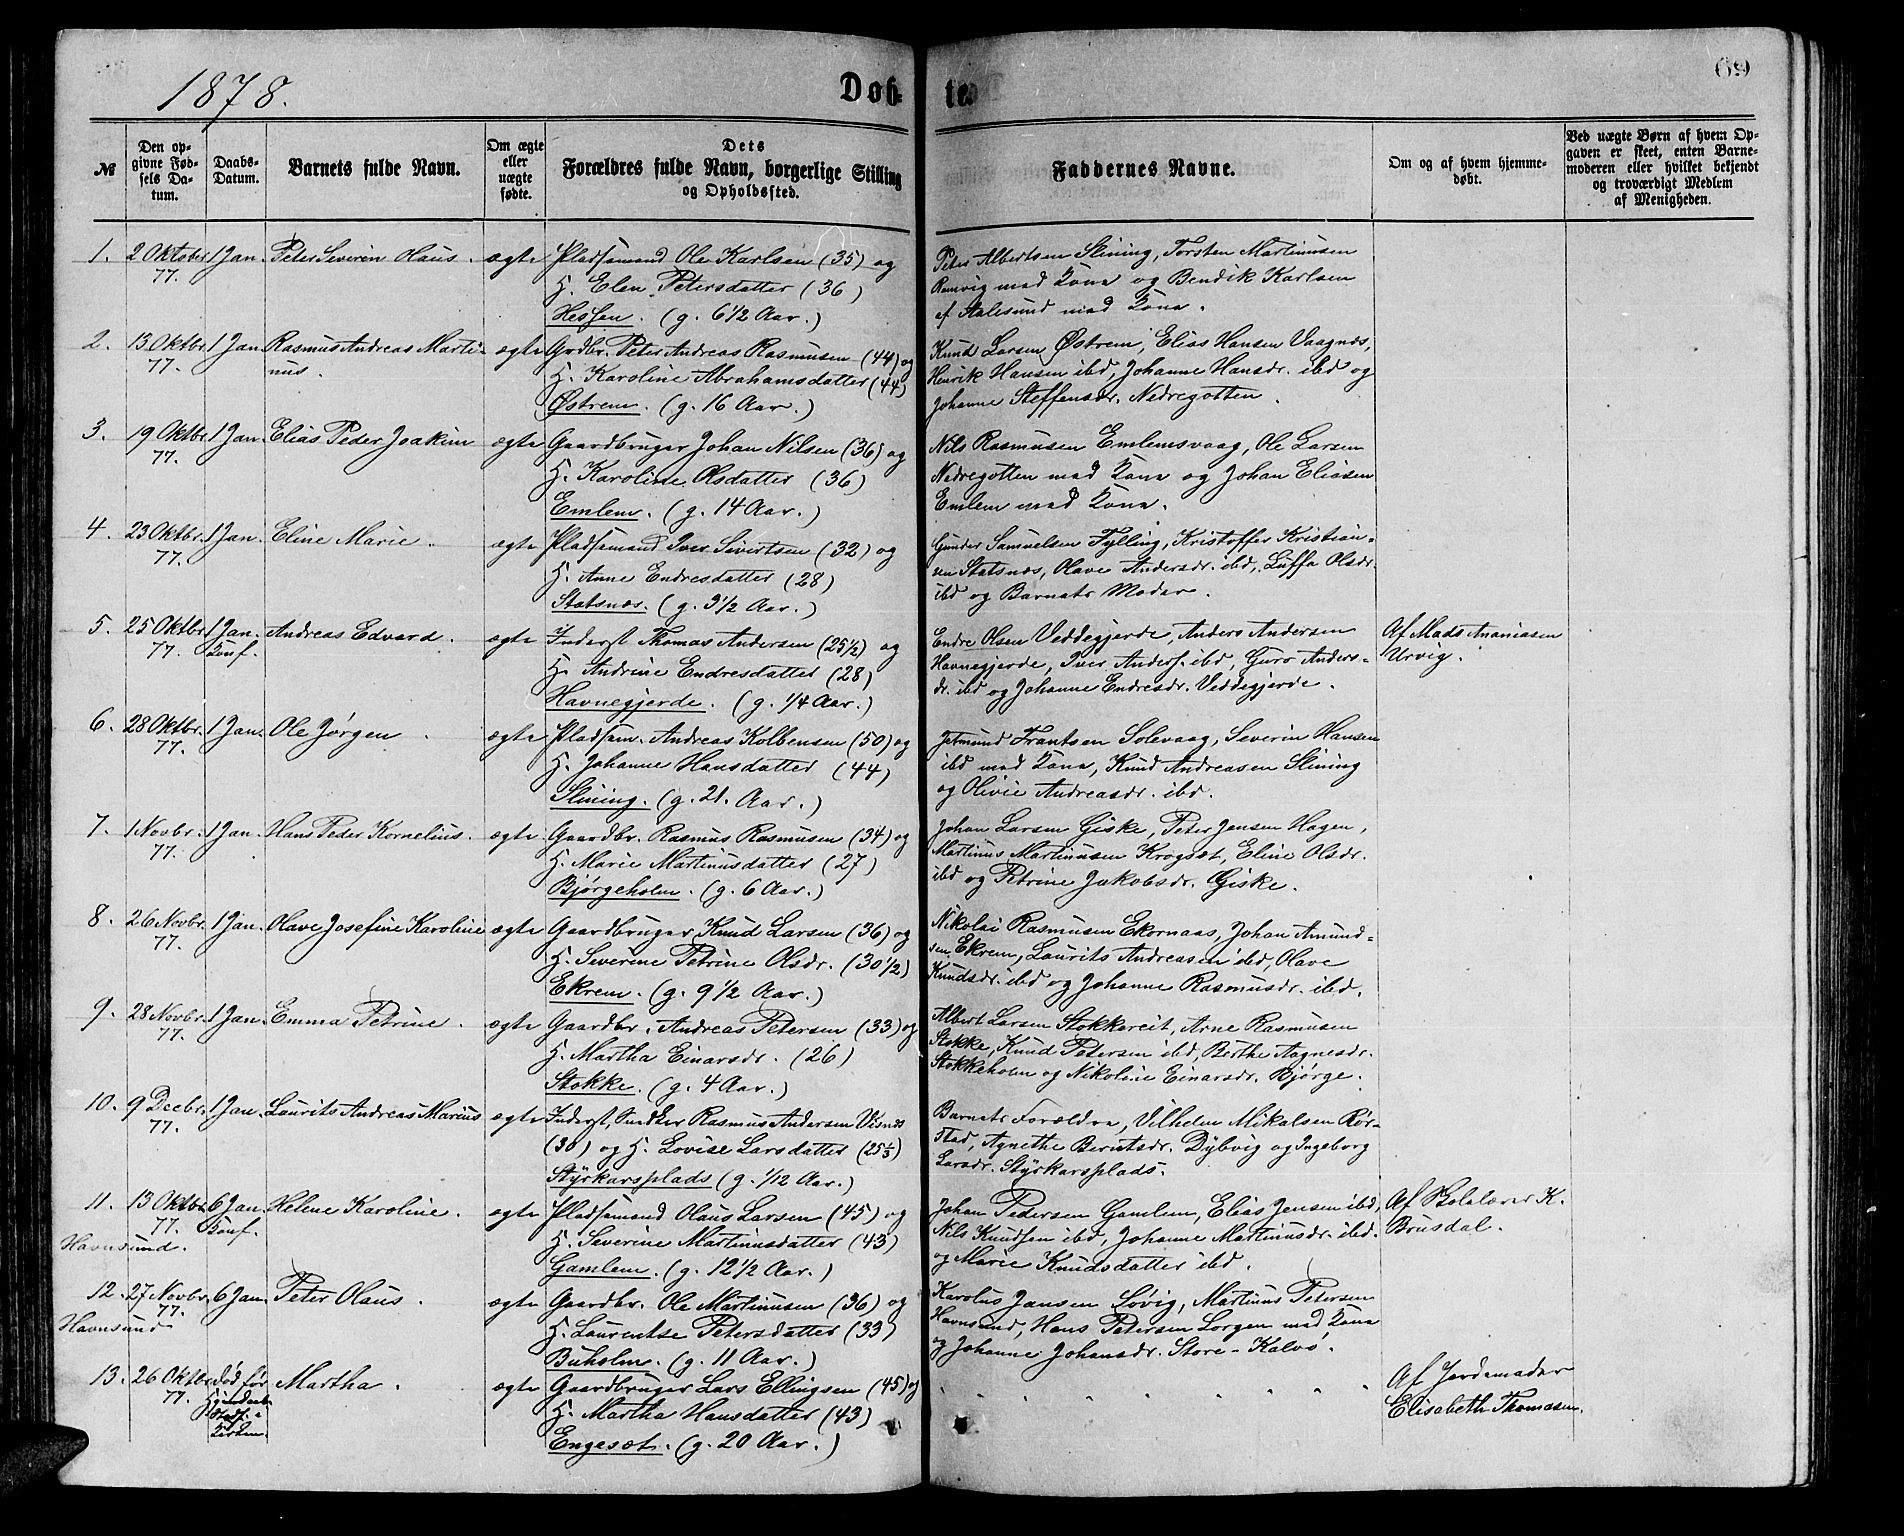 1878.
Døb-
te.
69
№
Den op-
givne Fød-
sels Da-
tum.
Daabs-
Datum.
Barnets fulde Navn.
Om ægte
eller
uægte
fødte.
Dets
Forældres fulde Navn, borgerlige Stilling
og Opholdssted.
Faddernes Navne.
Om og af hvem hjemme-
døbt.
Ved uægte Børn af hvem Op-
gaven er skeet, enten Barne-
moderen eller hvilket bekjendt
og troværdigt Medlem
af Menigheden.
1. 2 Oktober 1 Jan. Peter Severin Olaus. ægte Pladsemand Ole Karlsen (35) og
77. H. Elen Petersdatter (36)
Hessen. (g. 6 1/2 Aar.)
Peter Albertsen Slining, Torsten Martinusen
Ramvig med Kone og Bendik Karlsen
af Aalesund med Kone.
2. 13 Oktbr. 1 Jan. Rasmus Andreas Marti- ægte Grdbr. Peter Andreas Rasmusen (44) og
77. nus. H. Karoline Abrahamsdatter (44)
Østrem. (g. 16 Aar.)
Knud Larsen Østrem, Elias Hansen Vaagnæs,
Henrik Hansen ibd, Johanne Hansdr. ibd og
Johanne Steffensdr. Nedregotten.
3. 19 Oktbr. 1 Jan. Elias Peder Joakim ægte Gaardbruger Johan Nilsen (36) og
77. H. Karoline Olsdatter (36)
Emlem. (g. 14 Aar.)
Nils Rasmusen Emlemsvaag, Ole Larsen
Nedregotten med Kone og Johan Eliasen
Emlem med Kone.
4. 23 Oktbr. 1 Jan. Eline Marie. ægte Pladsemand Iver Sivertsen (32) og
77. H. Anne Endresdatter (28)
Statsnæs. (g. 3 1/2 Aar.)
Gunder Samuelsen Fylling, Kristoffer Kristian-
sen Statsnæs, Olave Andersdr. ibd, Luffa Olsdr.
ibd og Barnets Moder.
5. 25 Oktbr. 1 Jan. Andreas Edvard. ægte Inderst Thomas Andersen (25 1/2) og
77. Konf. H. Andrine Endresdatter (28)
Havnegjerde. (g. 1/4 Aar.)
Endre Olsen Veddegjerde, Anders Andersen
Havnegjerde, Iver Anders. ibd, Guro Anders-
dr. ibd og Johanne Endresdr. Veddegjerde.
Af Mads Ananiasen
Urvig.
6. 28 Oktbr. 1 Jan. Ole Jørgen. ægte Pladsem. Andreas Kolbensen (50) og
77. H. Johanne Hansdatter (44)
Slining. (g. 21. Aar.)
Jetmund Frantsen Solevaag, Severin Hansen
ibd med Kone, Knud Andreasen Slining
og Olivie Andreasdr. ibd.
7. 1 Novbr. 1 Jan. Hans Peder Kornelius. ægte Gaardbr. Rasmus Rasmusen (34) og
77. H. Marie Martinusdatter (27)
Bjørgeholm. (g. 6 Aar.)
Johan Larsen Giske, Peter Jensen Hagen,
Martinus Martinusen Krogsæt, Eline Olsdr.
ibd og Petrine Jakobsdr. Giske.
8. 26 Novbr. 1 Jan. Olave Josefine Karoline ægte Gaardbruger Knud Larsen (36) og
77. H. Severine Petrine Olsdr. (30 1/2)
Ekrem. (g. 9 1/2 Aar.)
Nikolai Rasmusen Ekornaas, Johan Amund-
sen Ekrem, Laurits Andreasen ibd, Olave
Knudsdr. ibd og Johanne Rasmusdr. ibd.
9. 28 Novbr. 1 Jan. Emma Petrine. ægte Gaardbr. Andreas Petersen (33) og
77. H. Martha Einarsdr. (26)
Stokke. (g. 4 Aar.)
Albert Larsen Stokkereit, Arne Rasmusen
Stokke, Knud Petersen ibd, Berthe Aagnesdr.
Stokkeholm og Nikoline Einarsdr. Bjørge.
10. 9 Decbr. 1 Jan. Laurits Andreas Marius ægte Inderst, Snedker Rasmus Andersen Visnæs
77. (30) og H. Lovise Larsdatter (25 1/3)
Styrkarsplads (g. 1/12 Aar.)
Barnets Forældre, Vilhelm Mikalsen Rør-
stad, Agnethe Berntsdr. Dybvig og Ingeborg
Larsdr. Styrkarsplads.
11. 13 Oktbr. 6 Jan. Helene Karoline. ægte Pladsemand Olaus Larsen (45) og
77. Konf.
Havnsund. H. Severine Martinusdatter (43)
Gamlem. (g. 12 1/2 Aar.)
Johan Pedersen Gamlem, Elias Jensen ibd,
Nils Knudsen ibd, Johanne Martinusdr. ibd.
og Marie Knudsdatter ibd.
Af Skolelærer K.
Brusdal.
12. 27 Novbr. 6 Jan. Peter Olaus. ægte Gaardbr. Ole Martinusen (36) og
77.
Havnsund H. Laurentse Petersdatter (33)
Buholm. (g. 11 Aar.)
Karolus Jansen Løvig, Martinus Petersen
Havnsund, Hans Petersen Longen med Kone
og Johanne Johansdr. Store-Kalvø.
13. 26 Oktbr. død før Martha. ægte Gaardbruger Lars Ellingsen (45) og
77. Hjemdaab
Stadf. i
Kirken. H. Martha Hansdatter (43)
Engesæt. (g. 20 Aar.)
" " " " " " "
Af Jordemoder
Elisabeth Thomasen.